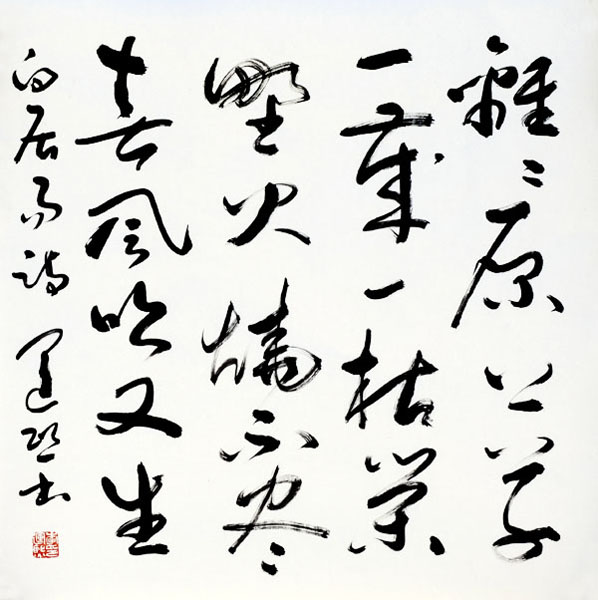 離〻原上草
一歲一枯榮
野火燒不盡
春風吹又生
白居易詩 书